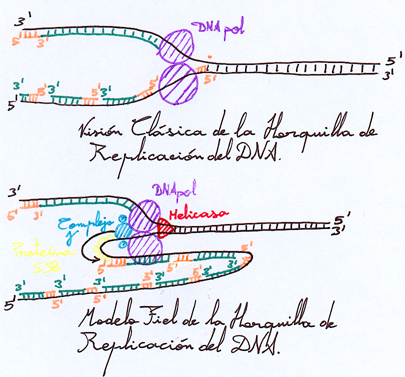 3'
DNA pol
5' 3'
5'
3'
5'
5'
3' 5' 3'
5' 3'
Visión Clásica de la Horquilla de
Replicación del DNA.
3'
DNApol
5' 3'
Complejo
γ
Helicasa
5'
3'
Proteína
SSB
5' 3' 5'
3'
5'
5' 3'
5'
3'
5' 3'
Modelo Fiel de la Horquilla de
Replicación del DNA.